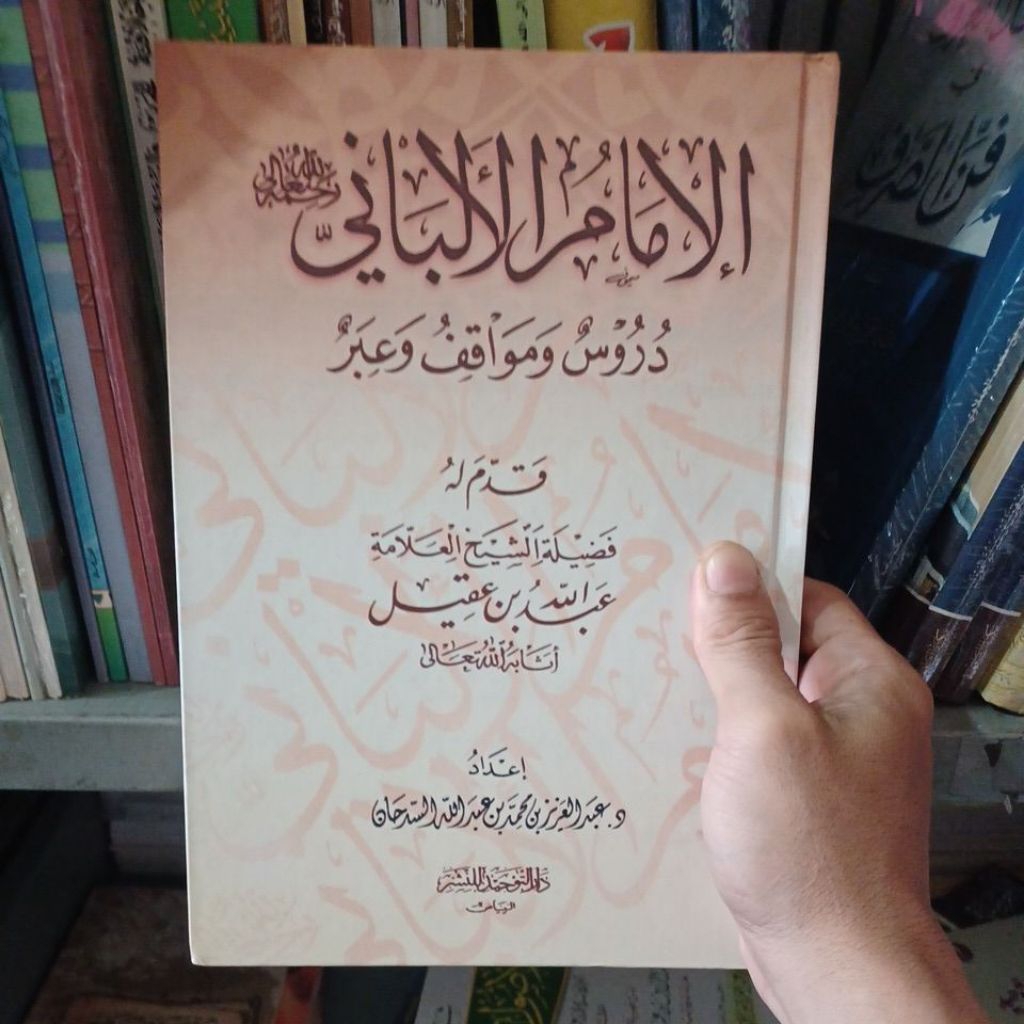 الإمَامُ الألبَانيّ رحمه الله تعالى
دُرُوْسٌ وَمَوَاقِفُ وَعِبَرٌ
قَدّمَ لَهُ
فَضِيْلَةُ الشَّيْخِ الْعَلّامَةِ
عَبْدُ اللهِ بن عقيل
أثَابَهُ اللهُ تَعَالى
إعْدَادُ
د. عبد العزيز بن محمّد بن عبد الله السّدحان
دار التوحيد للنشر
الرياض
فنّ الصرف